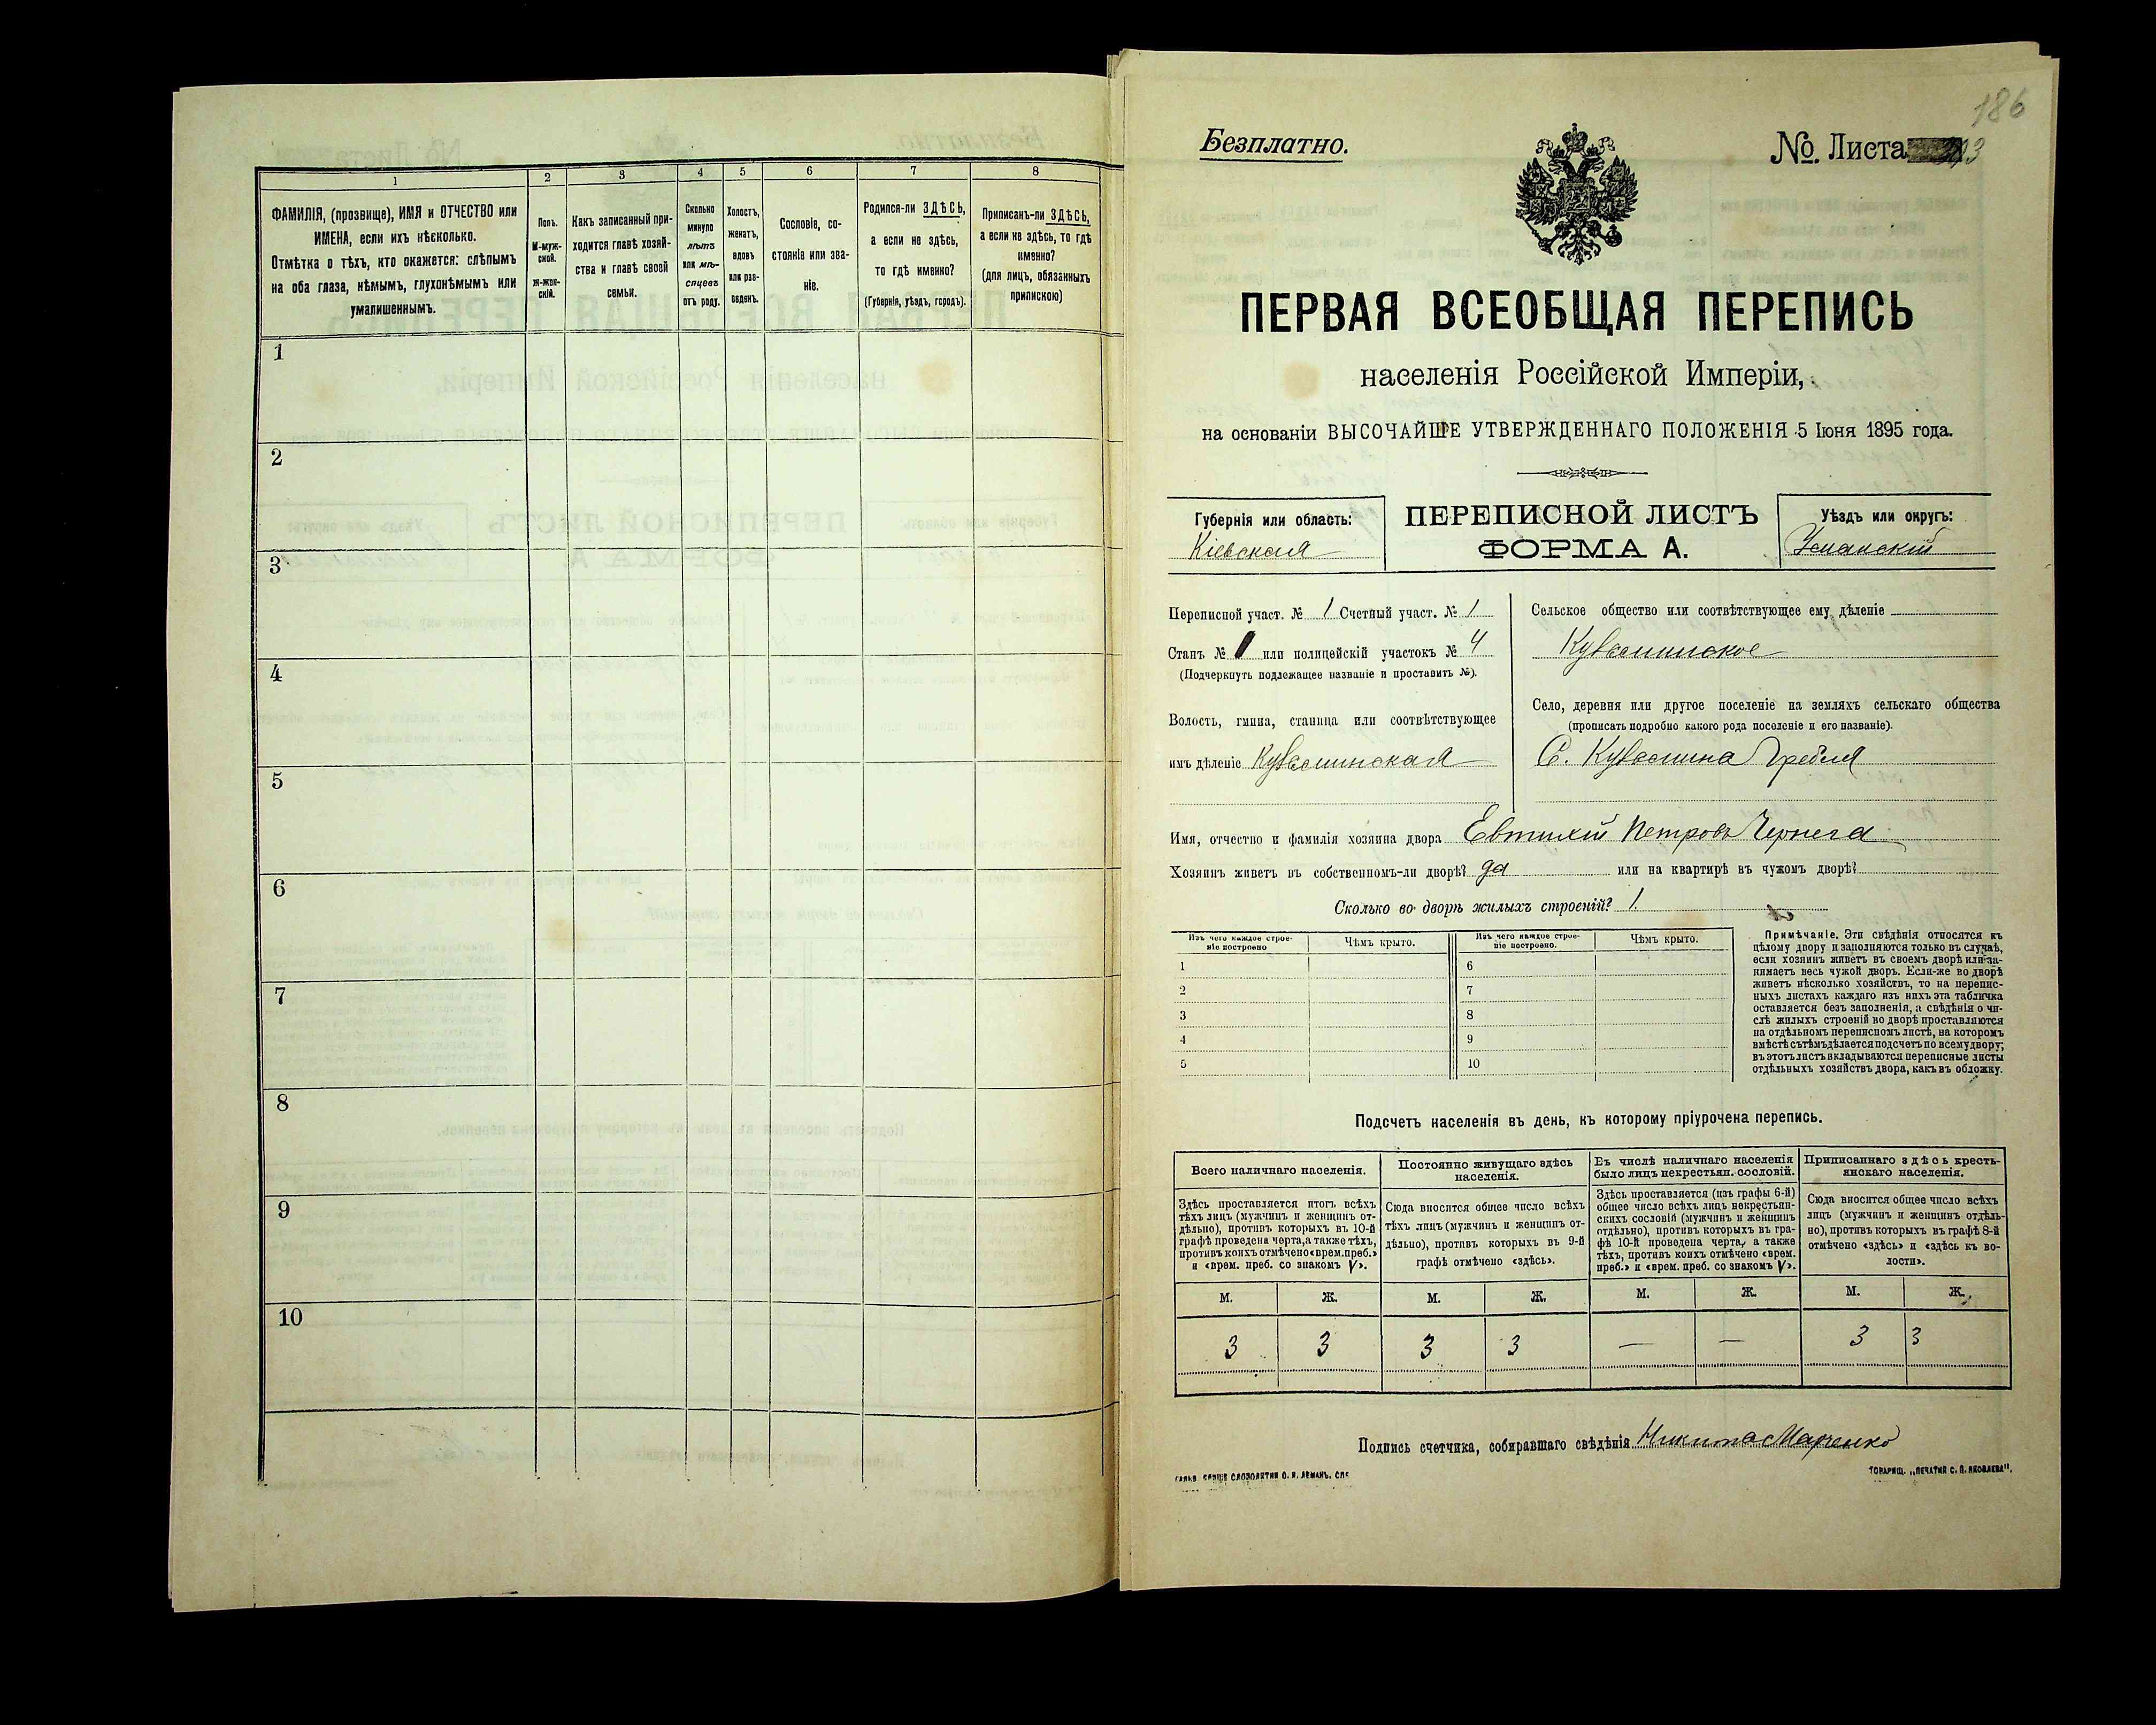 1
2
3
4
5
6
7
8
ФАМИЛІЯ, (прозвище), ИМЯ и ОТЧЕСТВО или
ИМЕНА, если ихъ нѣсколько.
Отмѣтка о тѣхъ, кто окажется: слѣпымъ
на оба глаза, нѣмымъ, глухонѣмымъ или
умалишеннымъ.
Полъ.
М-муж-
ской.
Ж-жен-
скій.
Какъ записанный при-
ходится главѣ хозяй-
ства и главѣ своей
семьи.
Сколько
минуло
лѣтъ
или мѣ-
сяцевъ
отъ роду.
Холостъ,
женатъ,
вдовъ
или раз-
веденъ.
Сословіе, со-
стояніе или зва-
ніе.
Родился-ли ЗДѢСЬ,
а если не здѣсь,
то гдѣ именно?
(Губернія, уѣздъ, городъ).
Приписанъ-ли ЗДѢСЬ,
а если не здѣсь, то гдѣ
именно?
(для лицъ, обязанныхъ
припискою)
1
2
3
4
5
6
7
8
9
10
186
Безплатно.
№. Листа
ПЕРВАЯ ВСЕОБЩАЯ ПЕРЕПИСЬ
населенія Россійской Имперіи,
на основаніи ВЫСОЧАЙШЕ УТВЕРЖДЕННАГО ПОЛОЖЕНІЯ 5 Іюня 1895 года.
Губернія или область:
Кіевская
ПЕРЕПИСНОЙ ЛИСТЪ
ФОРМА А.
Уѣздъ или округъ:
Уманскій
Переписной участ. № 1 Счетный участ. № 1
Станъ № или полицейскій участокъ № 4
(Подчеркнуть подлежащее названіе и проставить №).
Волость, гмина, станица или соотвѣтствующее
имъ дѣленіе Кузьминская
Сельское общество или соотвѣтствующее ему дѣленіе
Кузьминское
Село, деревня или другое поселеніе на земляхъ сельскаго общества
(прописать подробно какого рода поселеніе и его названіе).
С. Кузьмина Гребля
Имя, отчество и фамилія хозяина двора Евтихій Петровъ Чернега
Хозяинъ живетъ въ собственномъ-ли дворѣ? да или на квартирѣ въ чужомъ дворѣ?
Сколько во дворѣ жилыхъ строеній? 1.
Изъ чего каждое строе-
ніе построено
Чѣмъ крыто.
Изъ чего каждое строе-
ніе построено.
Чѣмъ крыто.
1
2
3
4
5
6
7
8
9
10
Примѣчаніе. Эти свѣдѣнія относятся къ
цѣлому двору и заполняются только въ случаѣ,
если хозяинъ живетъ въ своемъ дворѣ или за-
нимаетъ весь чужой дворъ. Если-же во дворѣ
живетъ нѣсколько хозяйствъ, то на перепис-
ныхъ листахъ каждаго изъ нихъ эта табличка
оставляется безъ заполненія, а свѣдѣнія о чи-
слѣ жилыхъ строеній во дворѣ проставляются
на отдѣльномъ переписномъ листѣ, на которомъ
вмѣстѣ съ тѣмъ дѣлается подсчетъ по всему двору;
въ этотъ листъ вкладываются переписные листы
отдѣльныхъ хозяйствъ двора, какъ въ обложку.
Подсчетъ населенія въ день, къ которому пріурочена перепись.
Всего наличнаго населенія.
Здѣсь проставляется итогъ всѣхъ
тѣхъ лицъ (мужчинъ и женщинъ от-
дѣльно), противъ которыхъ въ 10-й
графѣ проведена черта, а также тѣхъ,
противъ коихъ отмѣчено «врем. преб.»
и «врем. преб. со знакомъ V».
Постоянно живущаго здѣсь
населенія.
Сюда вносится общее число всѣхъ
тѣхъ лицъ (мужчинъ и женщинъ от-
дѣльно), противъ которыхъ въ 9-й
графѣ отмѣчено «здѣсь».
Въ числѣ наличнаго населенія
было лицъ некрестьян. сословій.
Здѣсь проставляется (изъ графы 6-й)
общее число всѣхъ лицъ некрестьян-
скихъ сословій (мужчинъ и женщинъ
отдѣльно), противъ которыхъ въ гра-
фѣ 10-й проведена черта, а также
тѣхъ, противъ коихъ отмѣчено «врем.
преб.» и «врем. преб. со знакомъ V».
Приписаннаго здѣсь кресть-
янскаго населенія.
Сюда вносится общее число всѣхъ
лицъ (мужчинъ и женщинъ отдѣль-
но), противъ которыхъ въ графѣ 8-й
отмѣчено «здѣсь» и «здѣсь къ во-
лости».
М. Ж. М. Ж. М. Ж. М. Ж.
3 3 3 3 — — 3 3
Подпись счетчика, собиравшаго свѣдѣнія Никита Марченко
СЛОВОЛИТНИ О. И. ЛЕМАНЪ, СПБ
ТОВАРИЩ. „ПЕЧАТНЯ С. П. ЯКОВЛЕВА".